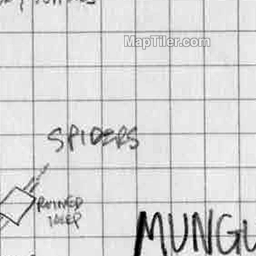 MapTiler.com
SPIDERS
RUINED
MUNGU